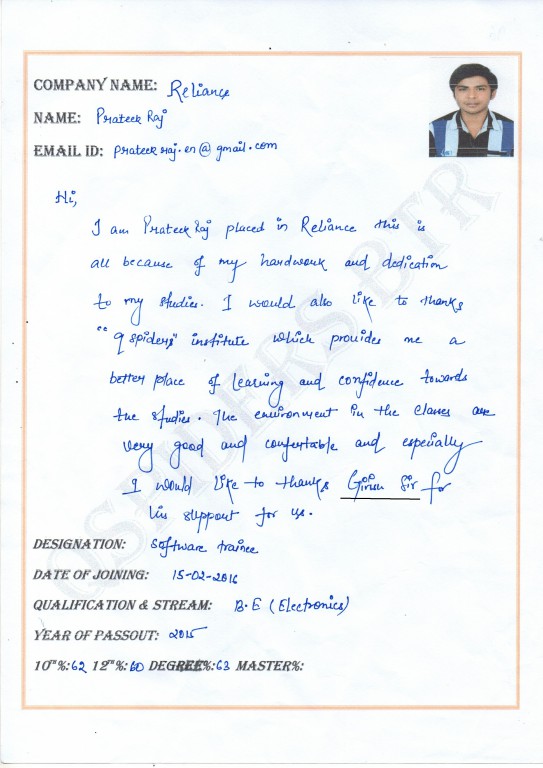 COMPANY NAME: Reliance
NAME: Prateek Raj
EMAIL ID: prateekraj.en@gmail.com
Hi,
I am Prateek Raj placed in Reliance this is
all because of my hardwork and dedication
to my studies. I would also like to thanks
"qspiders" institute which provides me a
better place of learning and confidence towards
the studies. The environment in the classes are
very good and comfortable and especially
I would like to thanks Girish Sir for
his support for us.
DESIGNATION: Software trainee
DATE OF JOINING: 15-02-2016
QUALIFICATION & STREAM: B.E (Electronics)
YEAR OF PASSOUT: 2015
10TH%:62 12TH%:60 DEGREE%:63 MASTER%:
QSPIDERS BTR